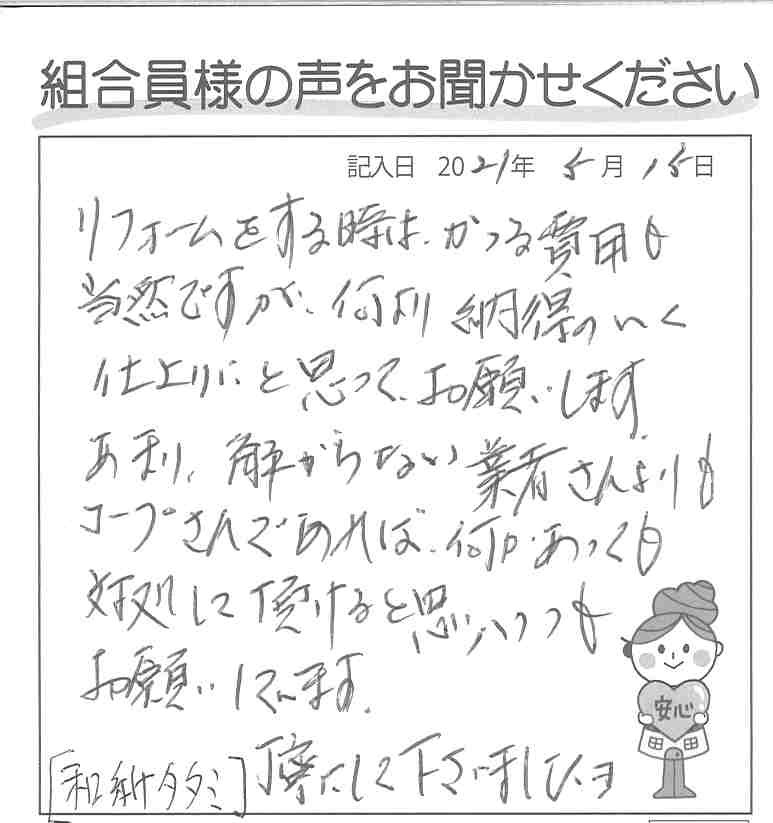 組合員様の声をお聞かせください
記入日 2021年 5月 15日
リフォームをする時は、かかる費用も
当然ですが、何より 納得のいく
仕上りにと思って、お願いします
あまり、解からない業者さんよりも
コープさんであれば、何かあっても
対処して頂けると思いいつも
お願いしてます。
[和紙タタミ] 丁寧にして下さいましたヨ
安心